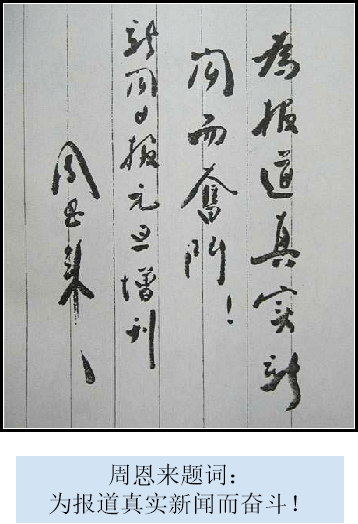 為报道真实新
闻而奮鬥！
新闻日报元旦增刊
周恩来
周恩来题词：
为报道真实新闻而奋斗！